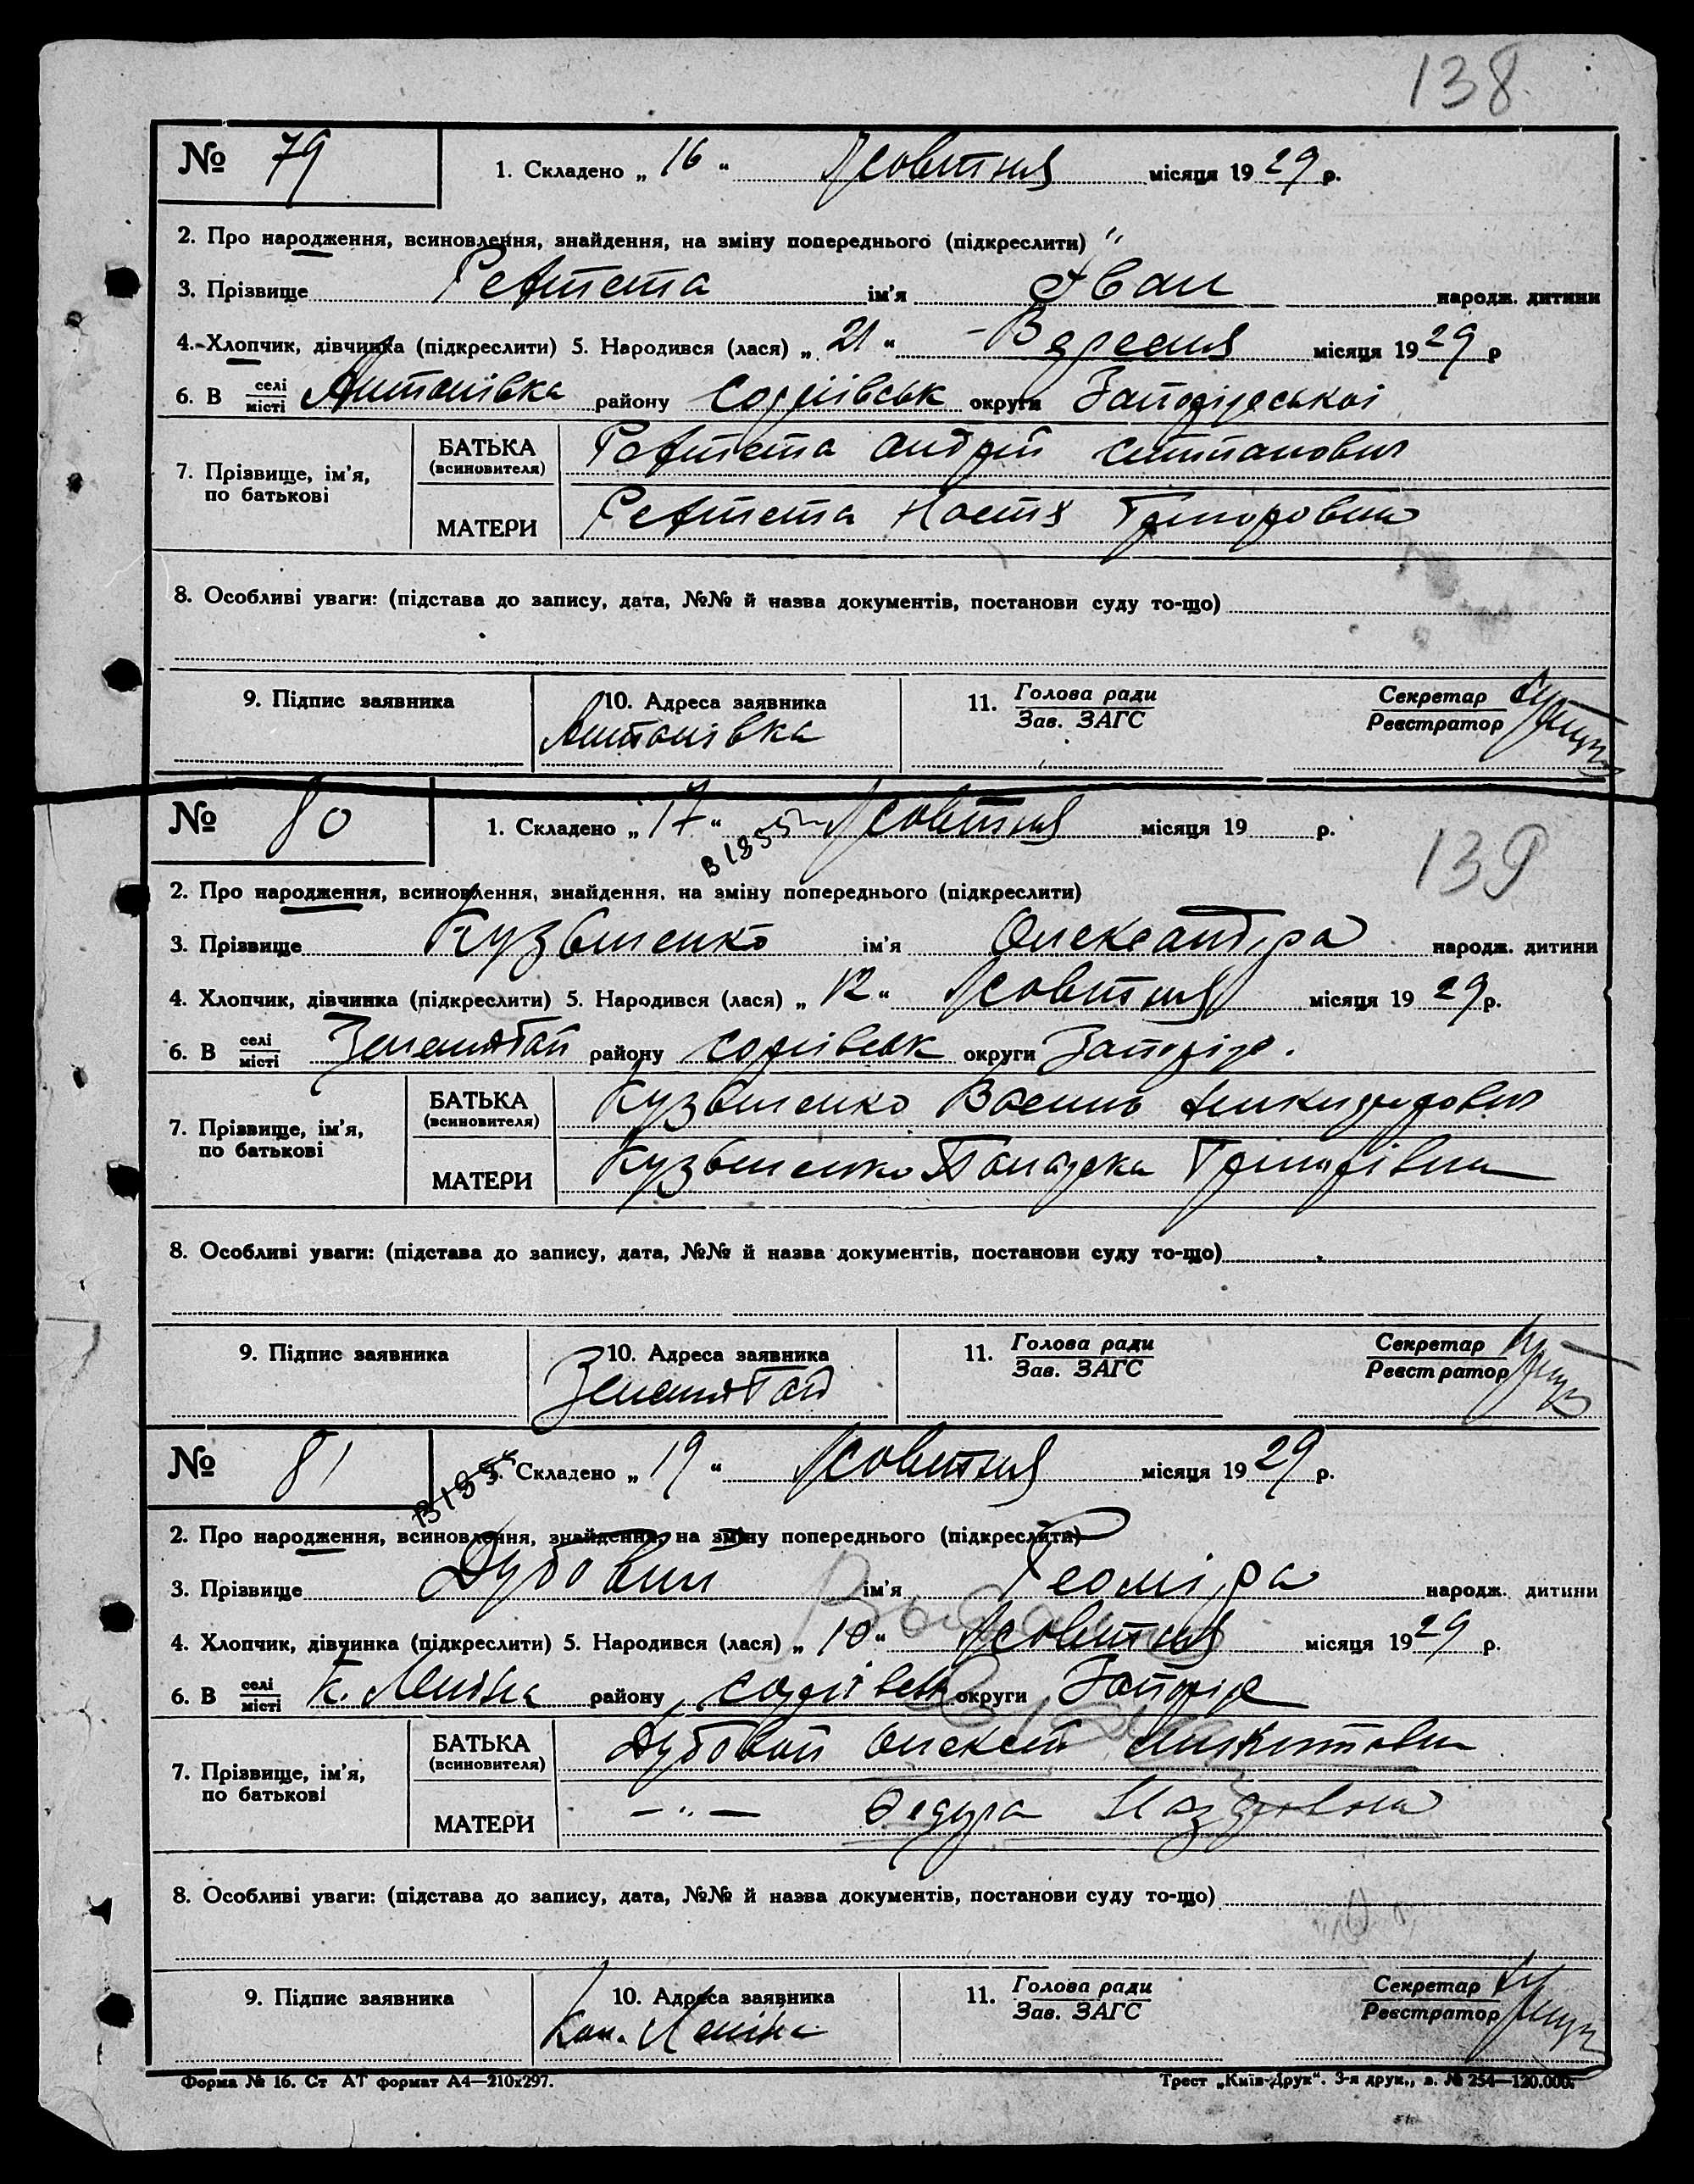 138
№ 79
1. Складено „ 16 " Жовтня місяця 1929 р.
2. Про народження, всиновлення, знайдення, на зміну попереднього (підкреслити)
3. Прізвище Репетета ім'я Іван народж. дитини
4. Хлопчик, дівчинка (підкреслити) 5. Народився (лася) „ 21 " Вересня місяця 1929 р
6. В селі/місті Антонівка району Софіївськ округи Запорізської
7. Прізвище, ім'я, по батькові
БАТЬКА (всиновителя) Андрій
МАТЕРИ Настя
8. Особливі уваги: (підстава до запису, дата, №№ й назва документів, постанови суду то-що)
9. Підпис заявника
10. Адреса заявника
Антонівка
11. Голова ради / Зав. ЗАГС
Секретар / Реєстратор
№ 80
1. Складено „ 17 " Жовтня місяця 19 р.
139
2. Про народження, всиновлення, знайдення, на зміну попереднього (підкреслити)
3. Прізвище Кузьменко ім'я Олександра народж. дитини
4. Хлопчик, дівчинка (підкреслити) 5. Народився (лася) „ 12 " Жовтня місяця 1929 р.
6. В селі/місті Зелений Гай району Софіївськ округи Запоріз.
7. Прізвище, ім'я, по батькові
БАТЬКА (всиновителя) Кузьменко Василь
МАТЕРИ Кузьменко Григорівна
8. Особливі уваги: (підстава до запису, дата, №№ й назва документів, постанови суду то-що)
9. Підпис заявника
10. Адреса заявника
Зелений Гай
11. Голова ради / Зав. ЗАГС
Секретар / Реєстратор
№ 81
1. Складено „ 19 " Жовтня місяця 1929 р.
2. Про народження, всиновлення, знайдення, на зміну попереднього (підкреслити)
3. Прізвище ім'я народж. дитини
4. Хлопчик, дівчинка (підкреслити) 5. Народився (лася) „ 10 " Жовтня місяця 1929 р.
6. В селі/місті К. Леніна району Софіївськ округи Запоріз
7. Прізвище, ім'я, по батькові
БАТЬКА (всиновителя) Дубовой Олексій Микитович
МАТЕРИ — " —
8. Особливі уваги: (підстава до запису, дата, №№ й назва документів, постанови суду то-що)
9. Підпис заявника
10. Адреса заявника
Ком. Леніна
11. Голова ради / Зав. ЗАГС
Секретар / Реєстратор
Форма № 16. Ст АТ формат А4—210х297.
Трест „Київ-Друк“. 3-я друк., в. № 254—120.000.